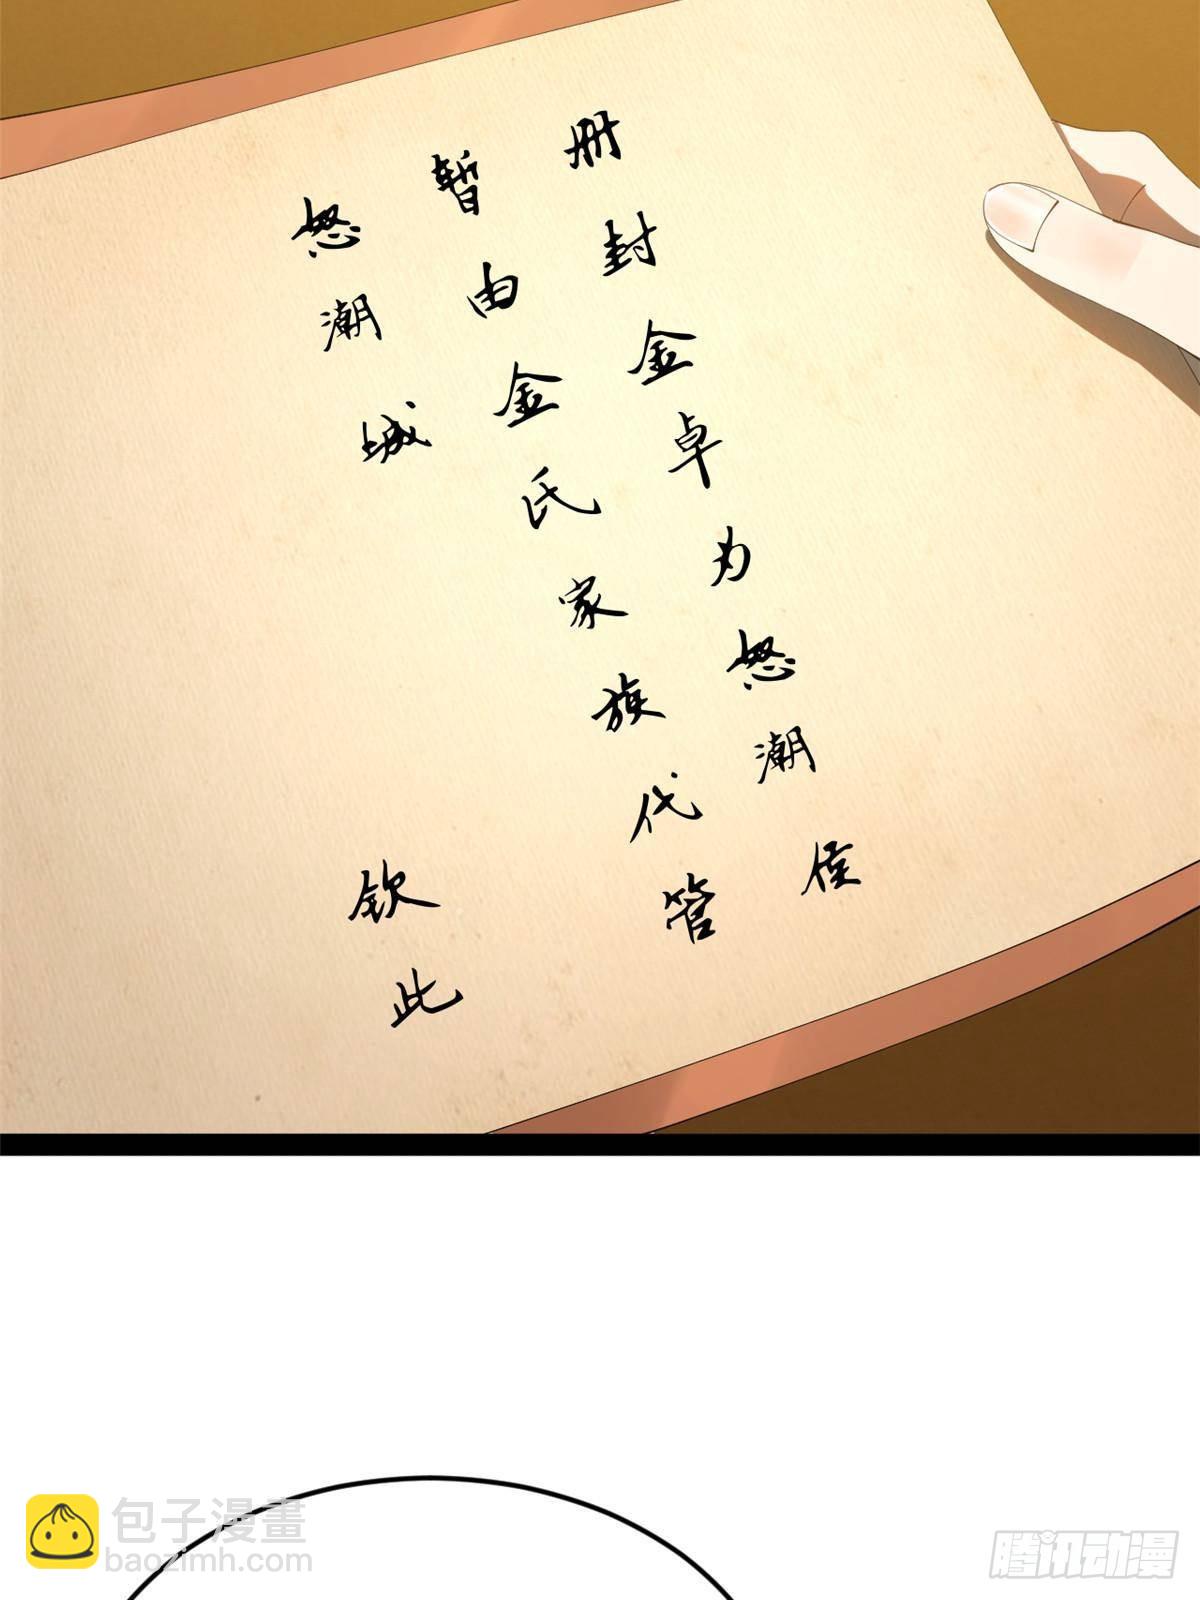 册封金卓为怒潮侯
暂由金氏家族代管
怒潮城
钦此
包子漫畫
baozimh.com
腾讯动漫